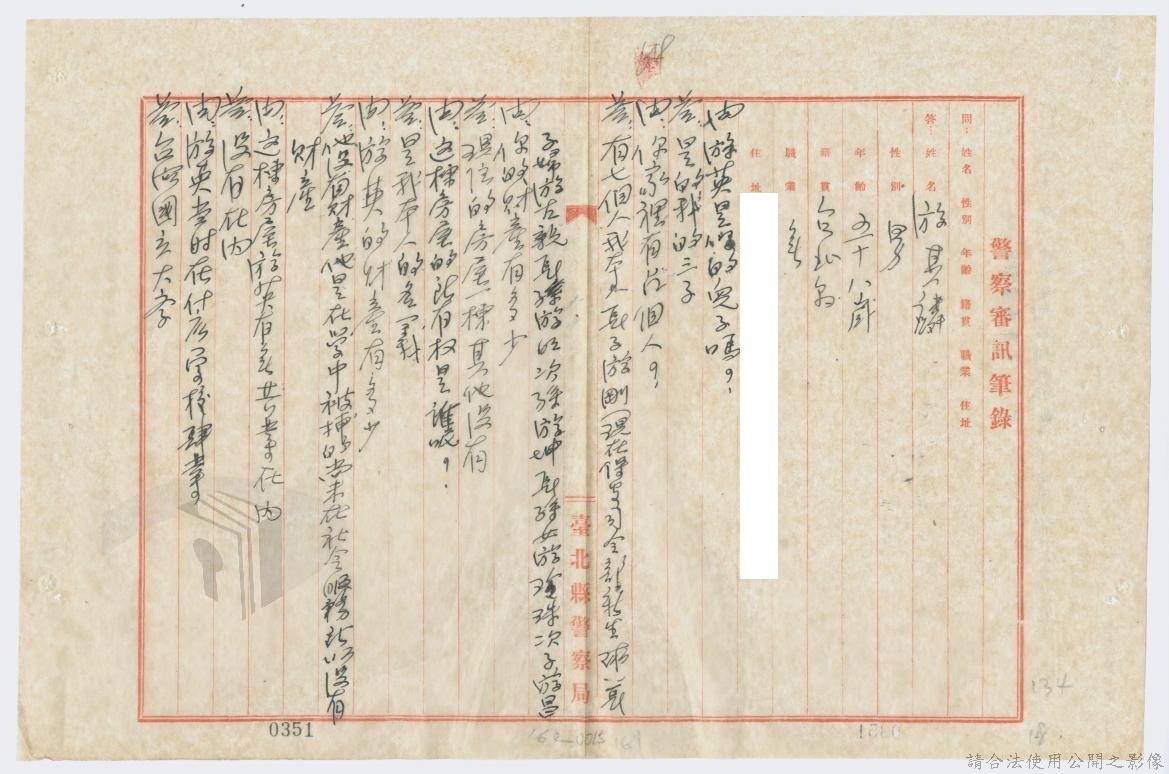 警察審訊筆錄
問：姓名 性別 年齡 籍貫 職業 住址
答：姓名 游其麟
性別 男
年齡 五十八歲
籍貫 台北縣
職業 無
住址
問：游英是你的兒子嗎？
答：是的我的三子
問：你家裡有幾個人？
答：有七個人我本人長子游剛現在保安司令部新生
子婦游 長孫游 次孫游坤長孫女游 珠次子游昌
問：你的財產有多少
答：現住的房屋一棟其他沒有
問：這棟房屋的所有權是誰呢？
答：是我本人的名義
問：游英的財產有多少
答：他沒有財產他是在學中被捕的業在社會服務所以沒有
財產
問：這棟房屋游英有無共業在內
答：沒有在內
問：游英當時在什么學校肆業
答：台灣國立大學
臺北縣警察局
0351
134
請合法使用公開之影像